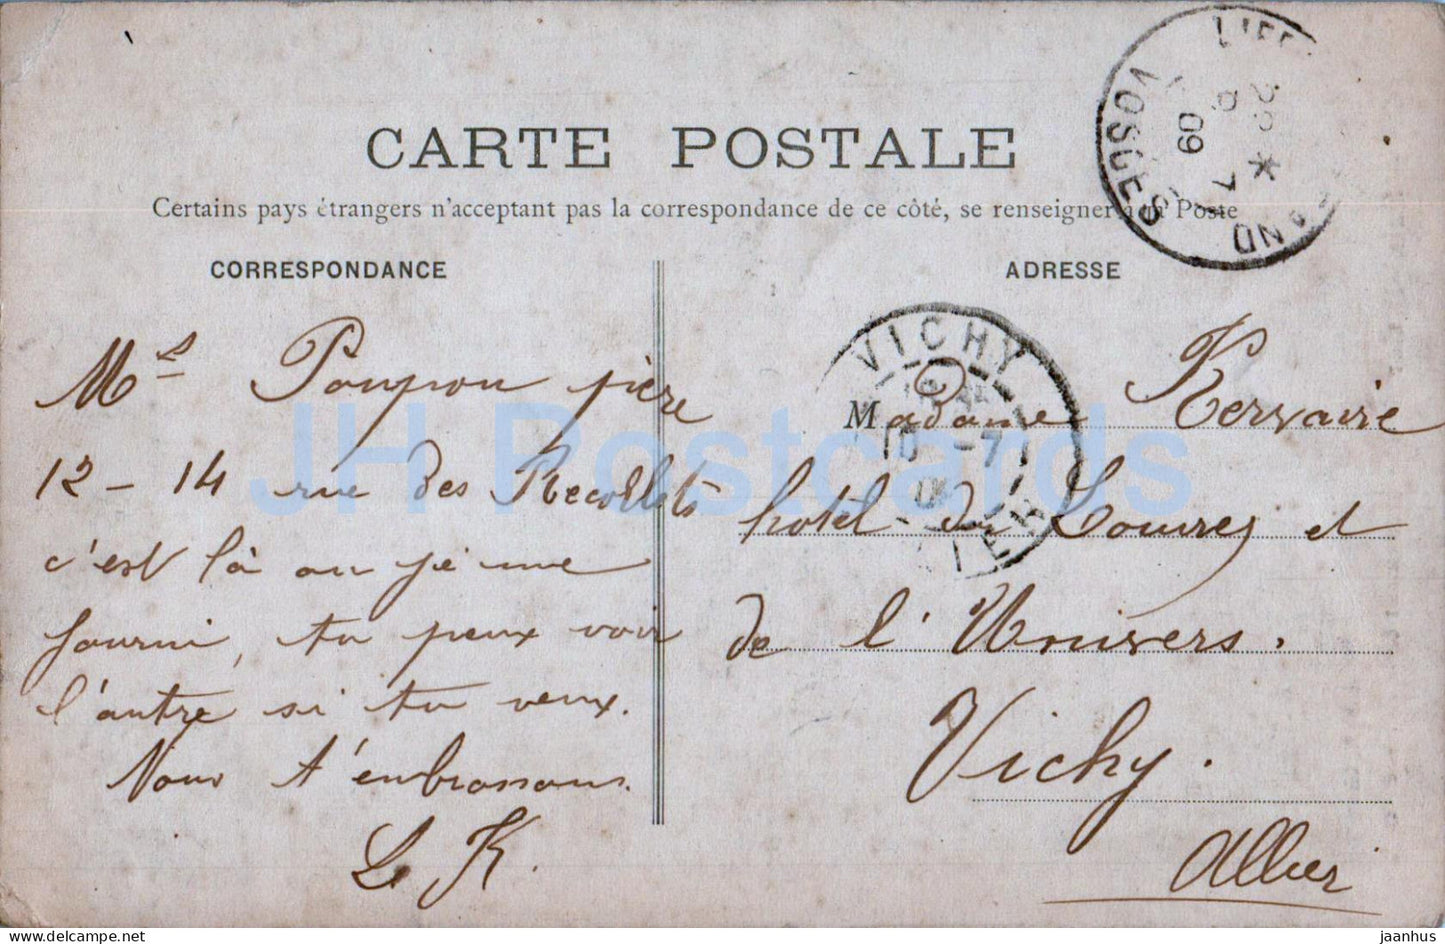 CARTE POSTALE
Certains pays étrangers n'acceptant pas la correspondance de ce côté, se renseigner à la Poste
CORRESPONDANCE
Ms Poupon père
12 - 14 rue des Recollets
c'est là ou je me
fourni, tu peux voir
l'autre si tu veux.
Nous t'embrassons.
L K.
ADRESSE
Madame Kervaire
hotel du Louvres et
de l'Univers.
Vichy.
Allier
VOSGES
09
VICHY
10 -7
JH Postcards
jaanhus
delcampe.net